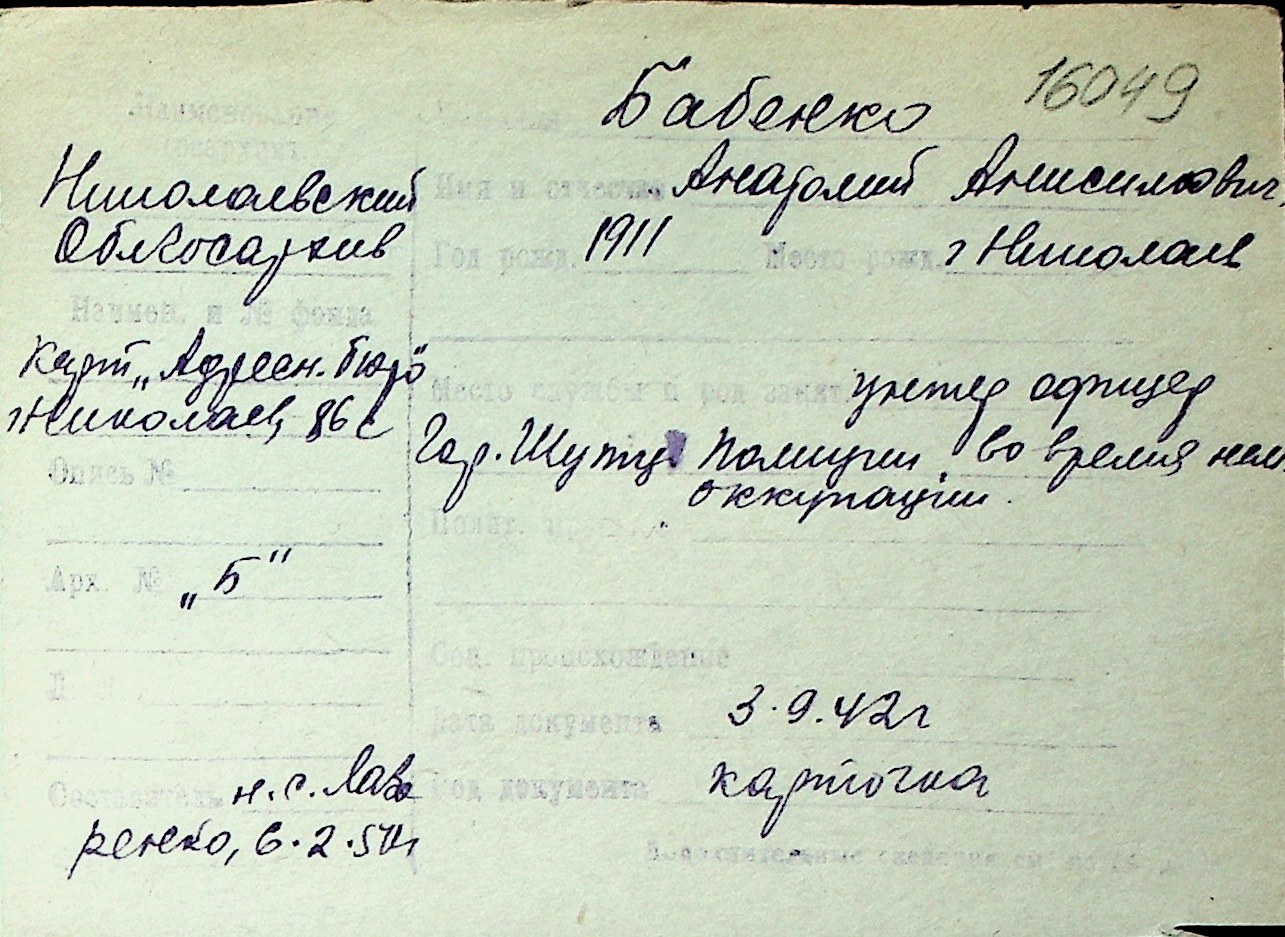 16049
Наименование госархива
Фамилия Бабенко
Николаевский
Облгосархив
Имя и отчество Анатолий Анисимович,
Год рожд. 1911 Место рожд. г Николаев
Наимен. и № фонда
карт „Адресн. бюро"
г Николаев,
Место службы и род занят. унтер офицер
Гор. Шутц Полиции во время нем
оккупации.
Опись №
Полит.
Арх. № „Б"
Соц. происхождение
Дата документа 3.9.42г
Род документа карточка
Составитель н.с. Лавренко, 6.2.50г
Дополнительные сведения см. на